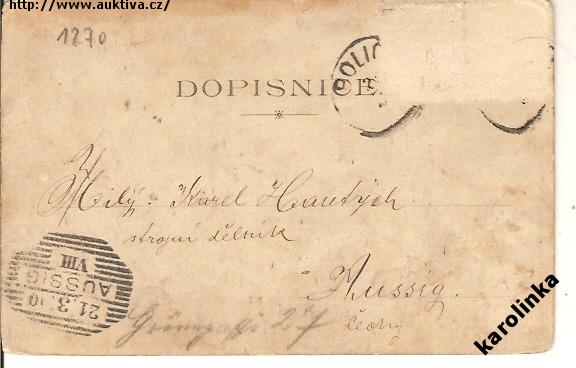 http://www.auktiva.cz/
1270
DOPISNICE.
POLIC
Milý. Karel Hautých
strojní dělník
Aussig.
Čechy
27
21 3 10
AUSSIG
VIII
karolinka